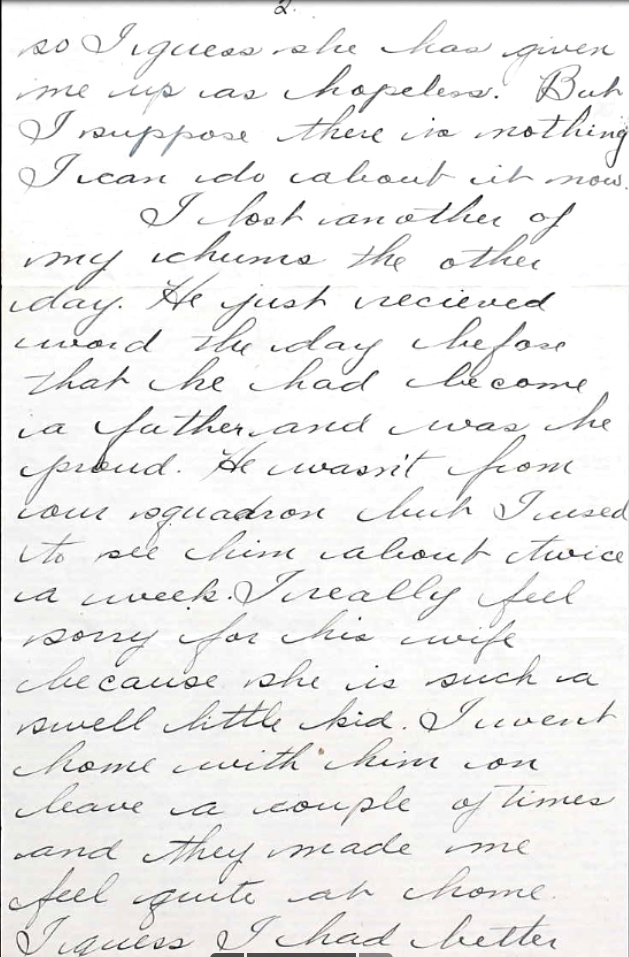 2.
so I guess she has given
me up as hopeless. But
I suppose there is nothing
I can do about it now.
I lost another of
my chums the other
day. He just recieved
word the day before
that he had become
a father and was he
proud. He wasn't from
our squadron but I used
to see him about twice
a week. I really feel
sorry for his wife
because she is such a
swell little kid. I went
home with him on
leave a couple of times
and they made me
feel quite at home.
I guess I had better